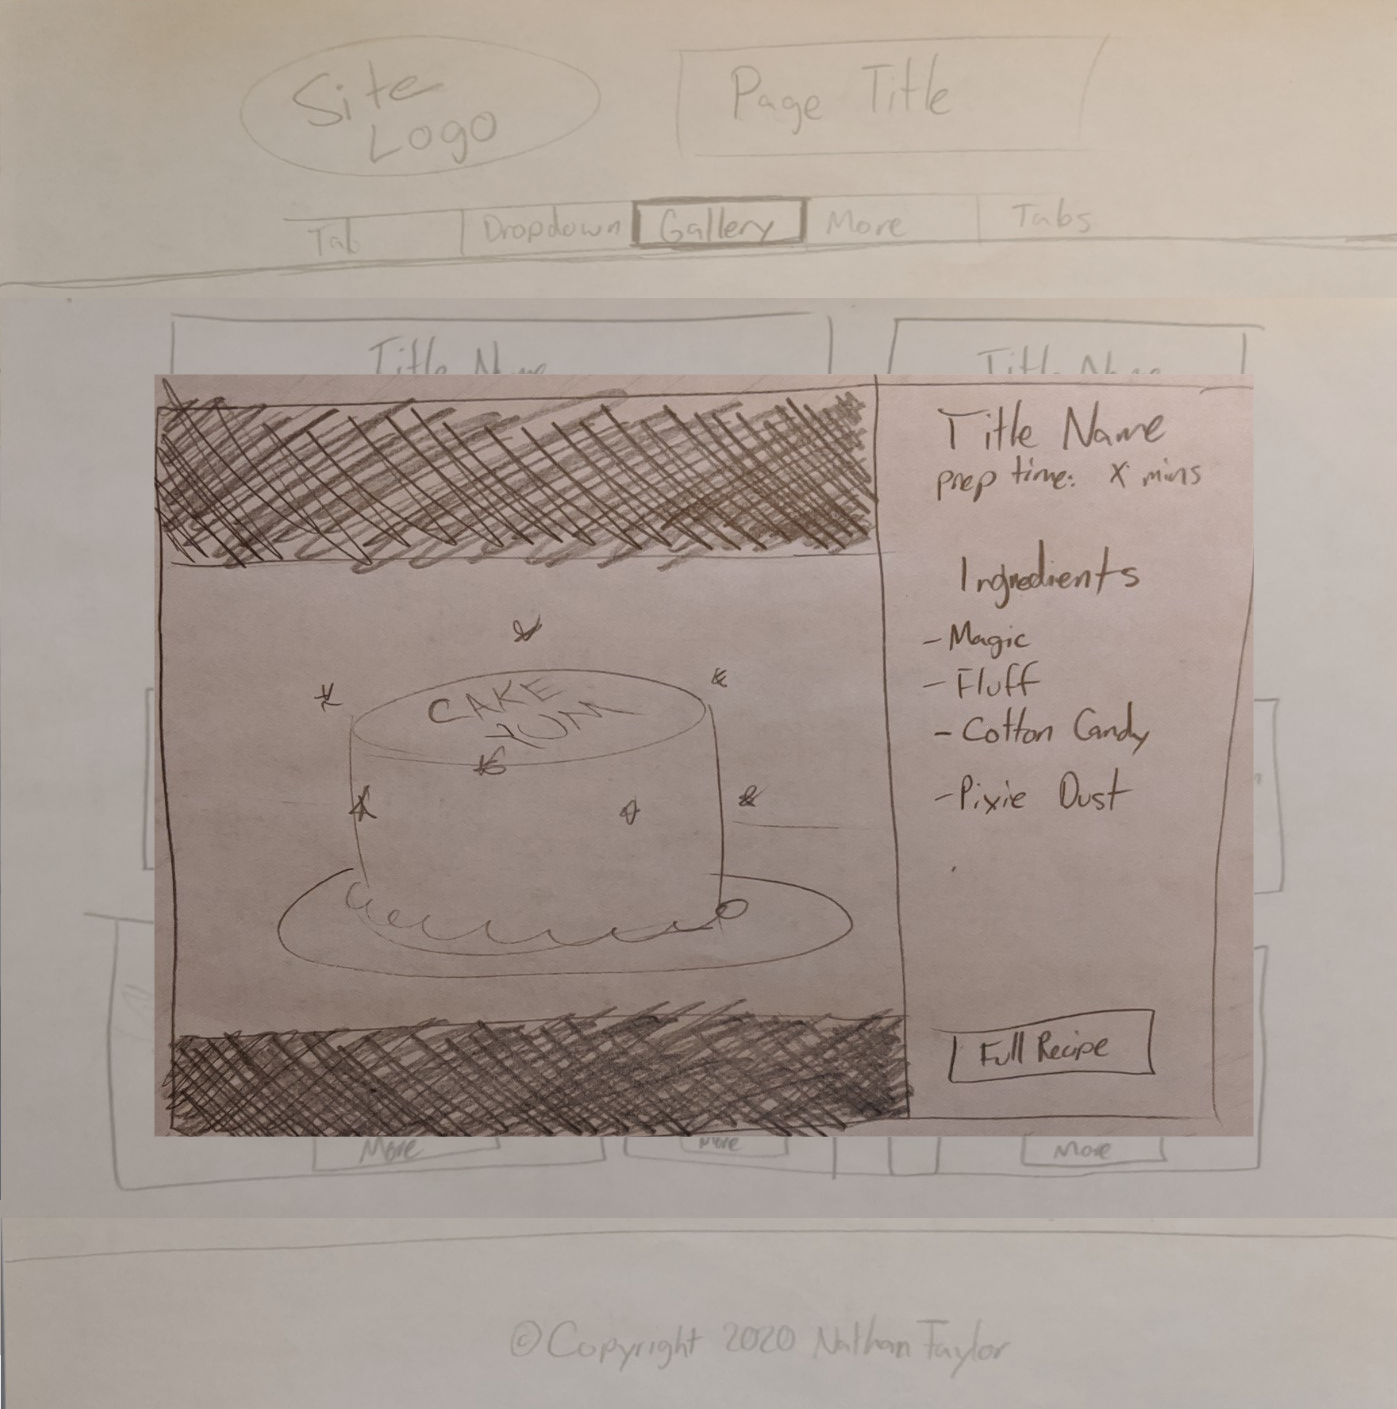 Site
Logo
Page Title
Tab
Dropdown
Gallery
More
Tabs
Title Name
Title Name
Title Name
prep time: X mins
Ingredients
- Magic
- Fluff
- Cotton Candy
- Pixie Dust
Full Recipe
CAKE
YUM
More
More
More
© Copyright 2020 Nathan Taylor